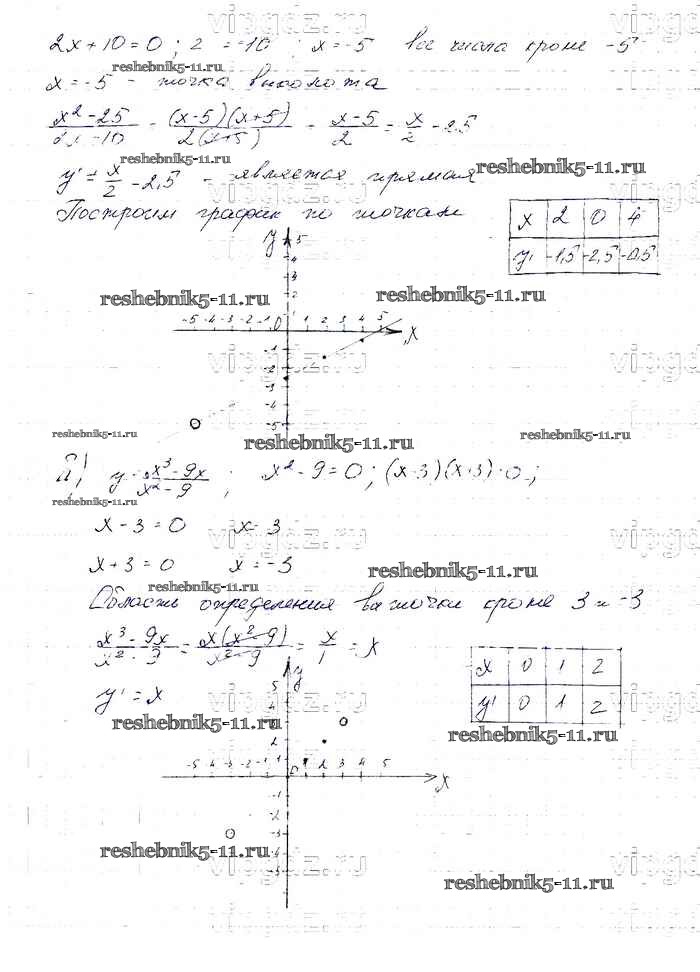 2x+10=0; 2 = -10; x=-5 все числа кроме -5
reshebnik5-11.ru
x=-5 - точка выколота
(x²-25)/(2x-10) = (x-5)(x+5)/2(x+5) = (x-5)/2 = x/2 - 2,5
reshebnik5-11.ru
reshebnik5-11.ru
y' = x/2 - 2,5 - является прямая
Построим график по точкам
x 2 0 4
y' -1,5 -2,5 -0,5
y 5
4
3
2
reshebnik5-11.ru
reshebnik5-11.ru
-5 -4 -3 -2 -1 0 1 2 3 4 5 x
-1
-2
-3
-4
-5
reshebnik5-11.ru
reshebnik5-11.ru
reshebnik5-11.ru
y = (x³-9x)/(x²-9); x²-9=0; (x-3)(x+3)=0;
reshebnik5-11.ru
x-3=0 x=3
x+3=0 x=-3
reshebnik5-11.ru
reshebnik5-11.ru
Область определения все точки кроме 3 и -3
(x³-9x)/(x²-9) = x(x²-9)/(x²-9) = x/1 = x
x 0 1 2
y' 0 1 2
y' = x
y
5
4
reshebnik5-11.ru
reshebnik5-11.ru
2
1
-5 -4 -3 -2 -1 0 1 2 3 4 5 x
-1
-2
-3
reshebnik5-11.ru
-5
reshebnik5-11.ru
vipgdz.ru
vipgdz.ru
vipgdz.ru
vipgdz.ru
vipgdz.ru
vipgdz.ru